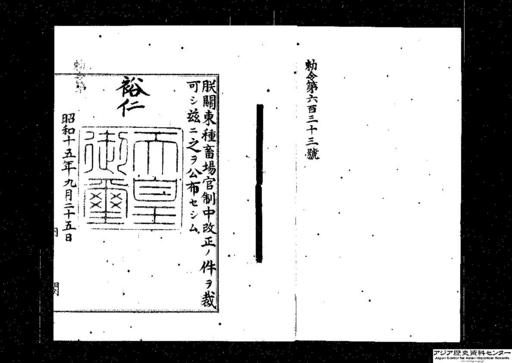 勅令第六百三十三號
朕關東種畜場官制中改正ノ件ヲ裁
可シ茲ニ之ヲ公布セシム
裕仁
天皇
御璽
昭和十五年九月二十五日
アジア歴史資料センター
Japan Center for Asian Historical Records